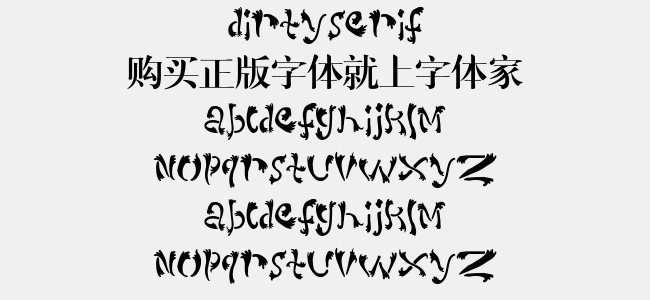 dirtyserif
购买正版字体就上字体家
abcdefghijklM
NOpqrstuvwxyz
abcdefghijklM
NOpqrstuvwxyz